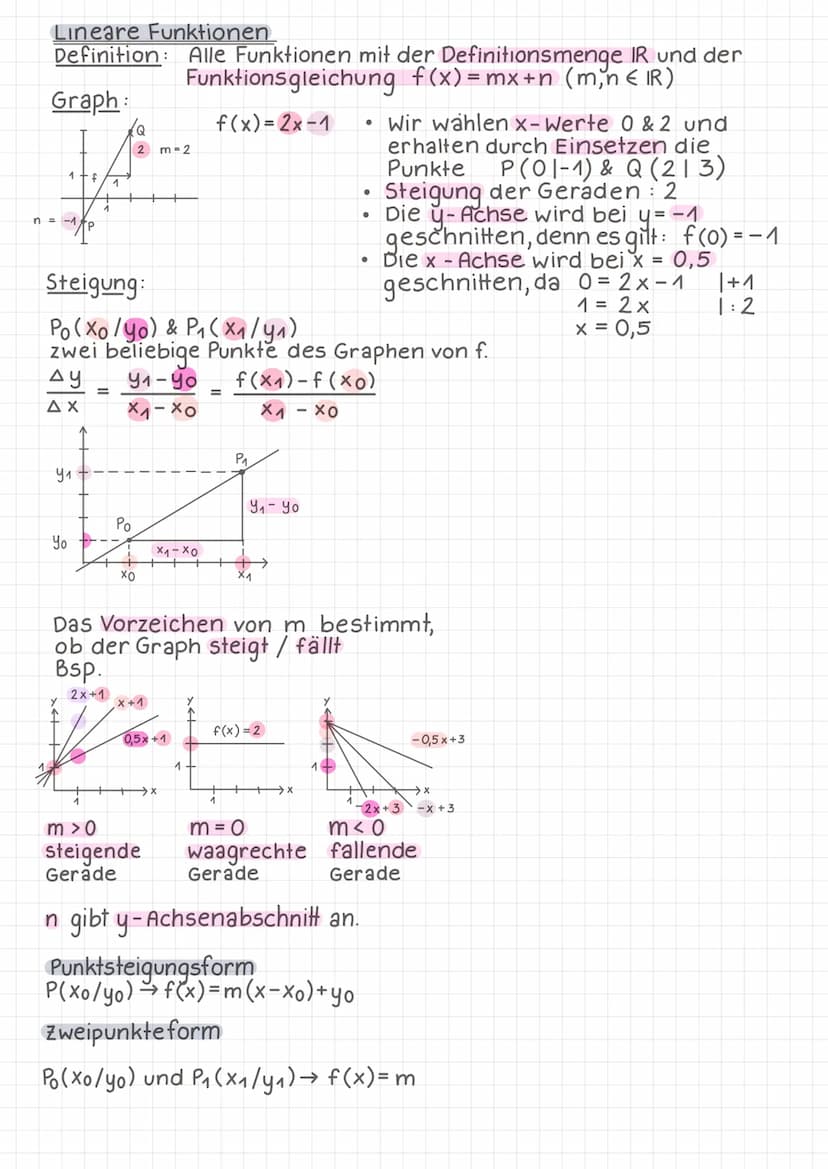 Lineare Funktionen
Definition: Alle Funktionen mit der Definitionsmenge IR und der
Funktionsgleichung f(x)=mx+n (m,n ∈ IR)
Graph:
f(x)=2x-1
Q
2 m=2
1 f 1
1
n = -1 P
• Wir wählen x-Werte 0 & 2 und
erhalten durch Einsetzen die
Punkte P(0|-1) & Q(2|3)
• Steigung der Geraden : 2
• Die y-Achse wird bei y=-1
geschnitten, denn es gilt: f(0)=-1
• Die x-Achse wird bei x = 0,5
geschnitten, da 0=2x-1 |+1
1=2x |:2
x=0,5
Steigung:
P₀(x₀/y₀) & P₁(x₁/y₁)
zwei beliebige Punkte des Graphen von f.
Δy/Δx = (y₁-y₀)/(x₁-x₀) = (f(x₁)-f(x₀))/(x₁-x₀)
P₁
y₁
y₁-y₀
P₀
y₀
x₁-x₀
x₀ x₁
Das Vorzeichen von m bestimmt,
ob der Graph steigt / fällt
Bsp.
y 2x+1 x+1
0,5x+1
1
1 x
y
f(x)=2
1
1 x
y
-0,5x+3
1
1 x
-2x+3 -x+3
m>0 m=0 m<0
steigende waagrechte fallende
Gerade Gerade Gerade
n gibt y-Achsenabschnitt an.
Punktsteigungsform
P(x₀/y₀)→f(x)=m(x-x₀)+y₀
Zweipunkteform
P₀(x₀/y₀) und P₁(x₁/y₁)→ f(x)=m